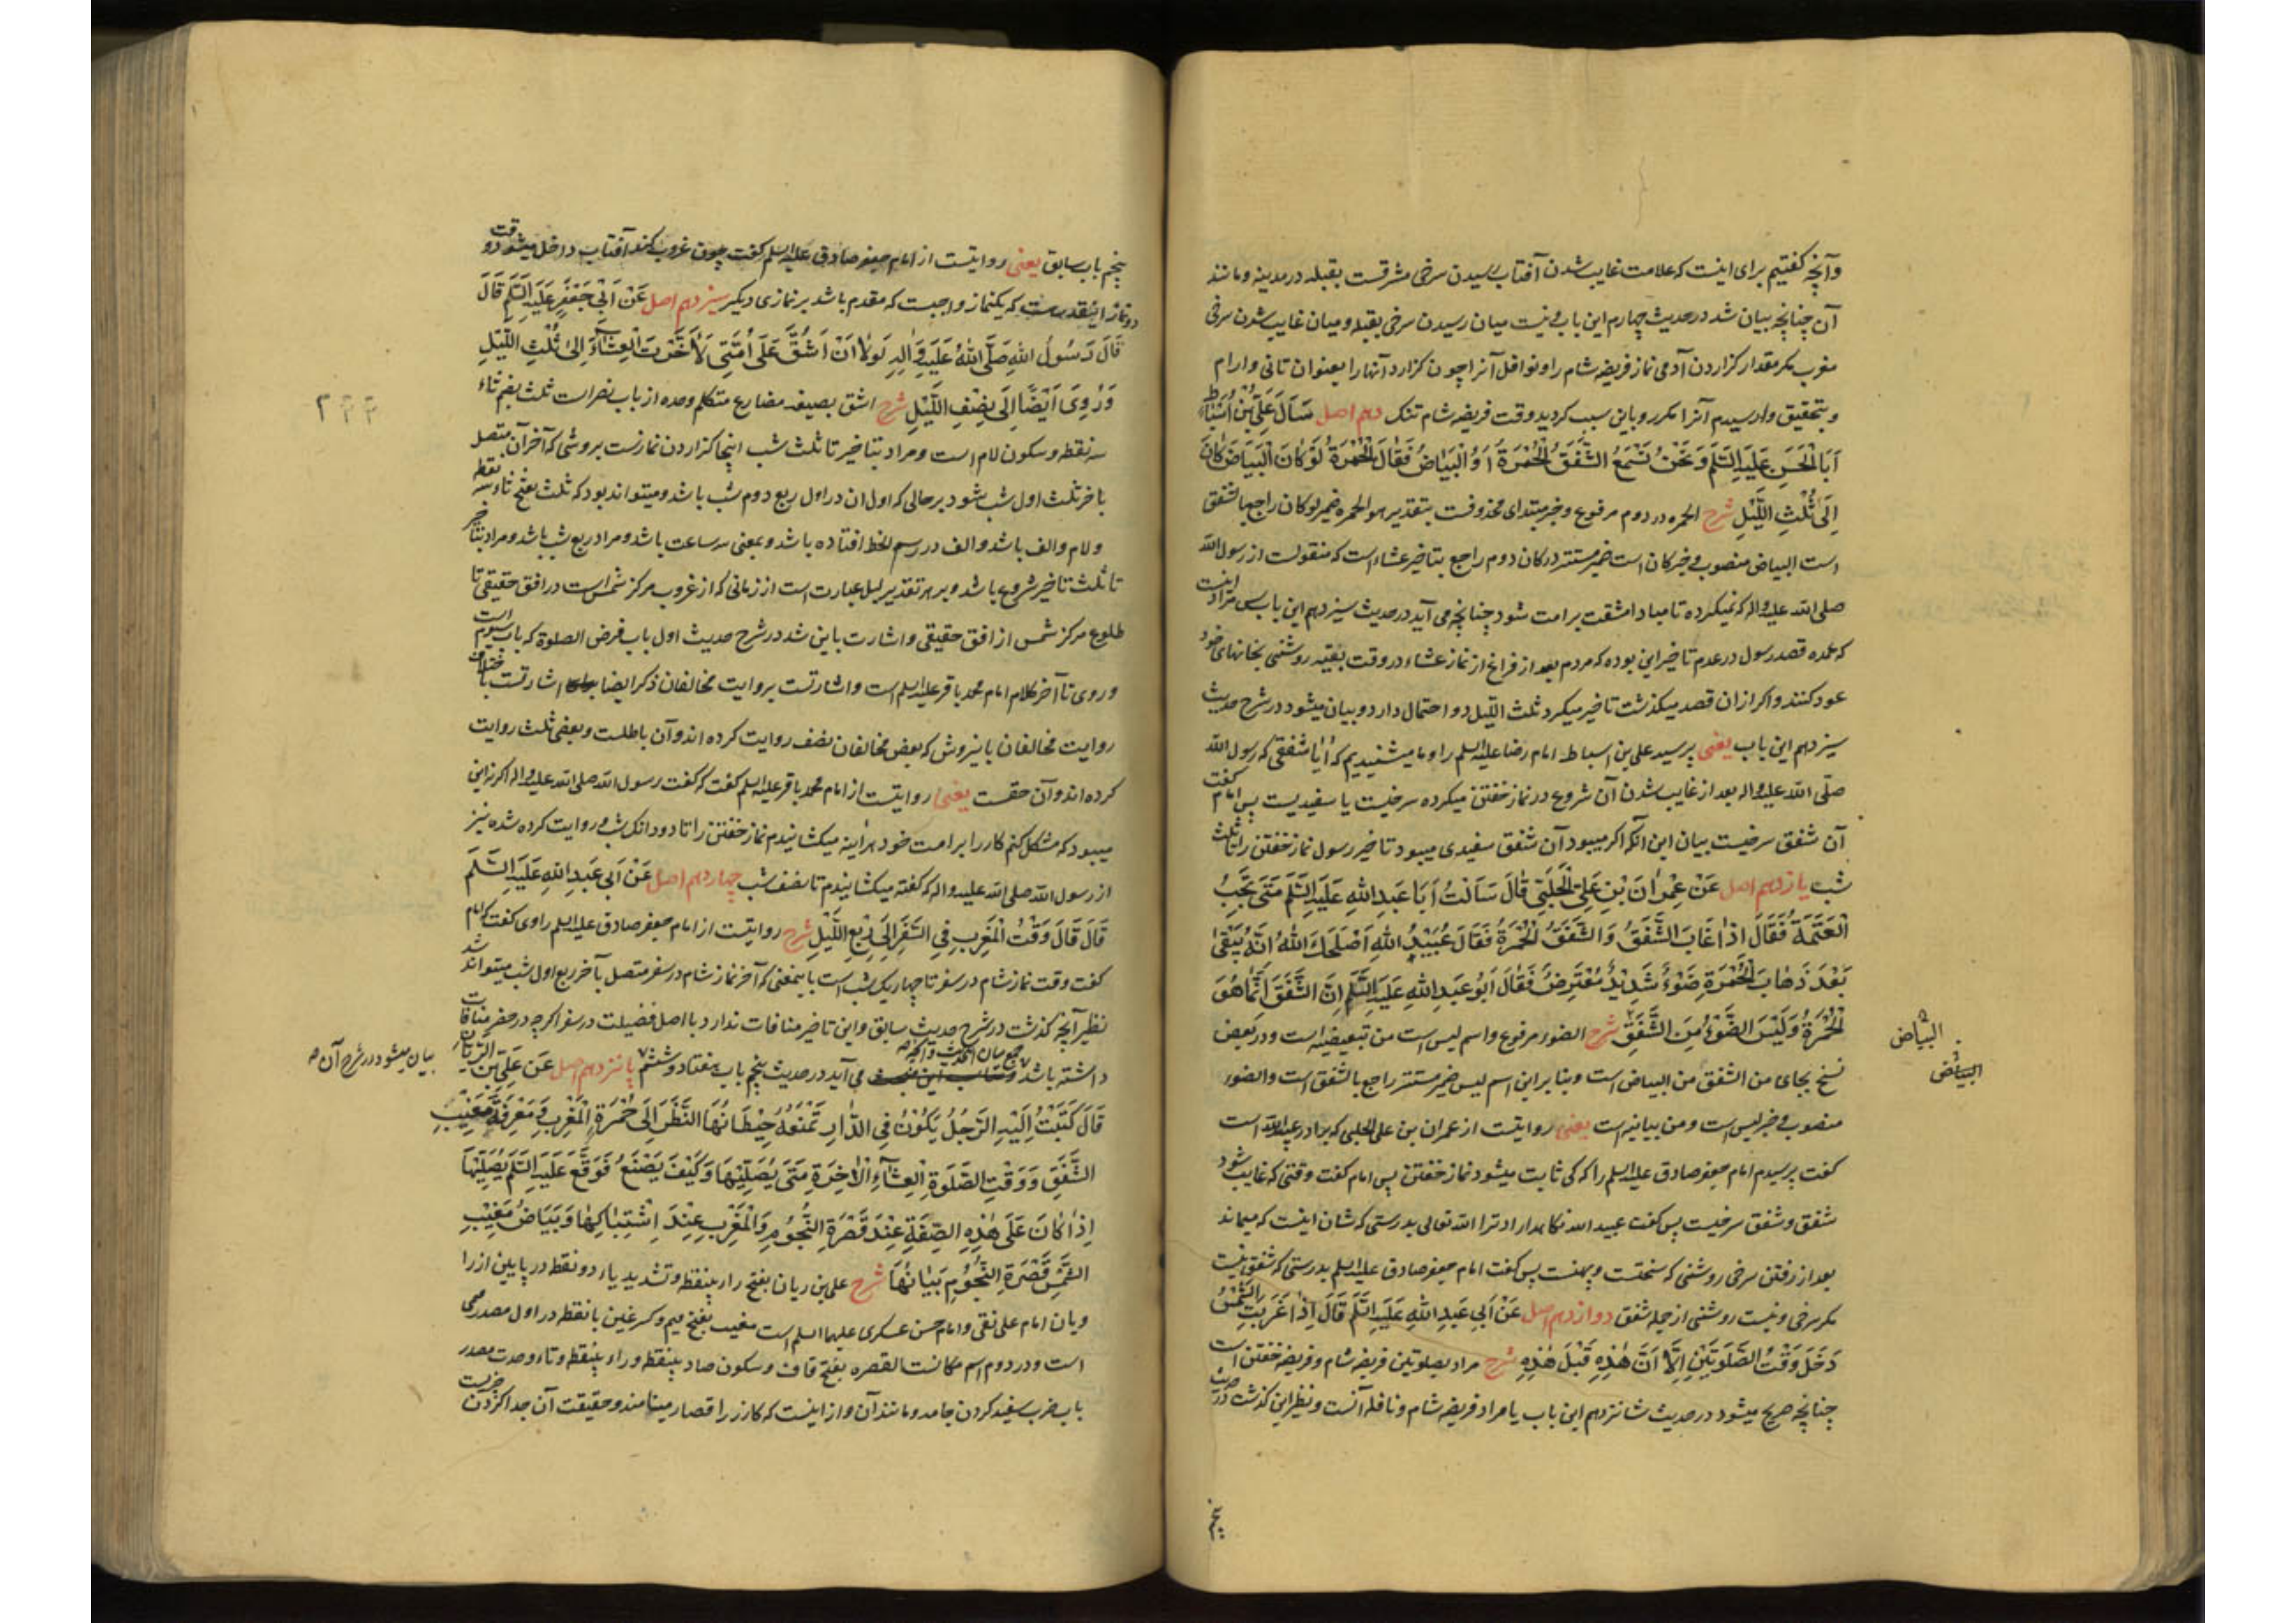 وآنچه کفتیم برای اینست که علامت غایب شدن آفتاب رسیدن سرخی مشرقست بقبله در مدینه ومانند
آن چنانچه بیان شد در حدیث چهارم این باب ونیست میان رسیدن سرخی بقبله ومیان غایب شدن سرخی
مغرب مکر مقدار کزاردن آدمی نماز فریضه شام را ونوافل آنرا چون کزارد آنها را بعنوان تانی وارام
وبتحقیق وارسیدم آنرا مکرر وباین سبب کردید وقت فریضه شام تنک دهم اصل سَأَلَ عَلِيُّ بْنُ أَسْبَاطٍ
أَبَا الْحَسَنِ عَلَيْهِ السَّلَمُ وَنَحْنُ نَسْمَعُ الشَّفَقُ الْحُمْرَةُ أَوِ الْبَيَاضُ فَقَالَ الْحُمْرَةُ لَوْ كَانَ الْبَيَاضَ كَانَ
إِلَى ثُلُثِ اللَّيْلِ شرح الحمره در دوم مرفوع وخبر مبتدای محذوفست بتقدیر هو الحمره ضمیر لو کان راجع بالشفق
است البیاض منصوب وخبر کان است ضمیر مستتر در کان دوم راجع بتاخیر عشاء است که منقولست از رسول الله
صلی الله علیه واله که نمیکرده تا مبادا مشقت بر امت شود چنانچه می آید در حدیث سیزدهم این باب پس مراد اینست
که عمده قصد رسول در عدم تاخیر این بوده که مردم بعد از فراغ از نماز عشاء در وقت بقیه روشنی بخانهای خود
عود کنند واکر از ان قصد میکذشت تاخیر میکرد ثلث اللیل دو احتمال دارد وبیان میشود در شرح حدیث
سیزدهم این باب یعنی پرسید علی بن اسباط امام رضا علیه السلم را وما میشنیدیم که آیا شفقی که رسول الله
صلّی الله علیه واله بعد از غایب شدن آن شروع در نماز خفتن میکرده سرخیست یا سفیدیست پس امام کفت
آن شفق سرخیست بیان این آنکه اکر میبود آن شفق سفیدی میبود تاخیر رسول نماز خفتن را تا ثلث
شب یازدهم اصل عَنْ عِمْرَانَ بْنِ عَلِيٍّ الْحَلَبِيِّ قَالَ سَأَلْتُ أَبَا عَبْدِ اللهِ عَلَيْهِ السَّلَمُ مَتَى تَجِبُ
الْعَتَمَةُ فَقَالَ إِذَا غَابَ الشَّفَقُ وَالشَّفَقُ الْحُمْرَةُ فَقَالَ عُبَيْدُ اللهِ أَصْلَحَكَ اللهُ إِنَّهُ يَبْقَى
بَعْدَ ذَهَابِ الْحُمْرَةِ ضَوْءٌ شَدِيدٌ مُعْتَرِضٌ فَقَالَ أَبُو عَبْدِ اللهِ عَلَيْهِ السَّلَمُ إِنَّ الشَّفَقَ إِنَّمَا هُوَ
الْحُمْرَةُ وَلَيْسَ الضَّوْءُ مِنَ الشَّفَقِ شرح الضوء مرفوع واسم لیس است من تبعیضیه است ودر بعض
نسخ بجای من الشفق من البیاض است وبنا بر این اسم لیس ضمیر مستتر راجع بالشفق است والضوء
منصوب وخبر لیس است ومن بیانیه است یعنی روایتست از عمران بن علی الحلبی که برادر عبید الله است
کفت پرسیدم امام جعفر صادق علیه السلم را که کی ثابت میشود نماز خفتن پس امام کفت وقتی که غایب شود
شفق وشفق سرخیست پس کفت عبید الله نکاهدارد ترا الله تعالی بدرستی که شان اینست که میماند
بعد از رفتن سرخی روشنی که سختست وپهنست پس کفت امام جعفر صادق علیه السلم بدرستی که شفق نیست
مکر سرخی ونیست روشنی از جمله شفق دوازدهم اصل عَنْ أَبِي عَبْدِ اللهِ عَلَيْهِ السَّلَمُ قَالَ إِذَا غَرَبَتِ الشَّمْسُ
دَخَلَ وَقْتُ الصَّلَوتَيْنِ إِلَّا أَنَّ هٰذِهِ قَبْلَ هٰذِهِ شرح مراد بصلوتین فریضه شام وفریضه خفتن است
چنانچه صریح میشود در حدیث شانزدهم این باب یا مراد فریضه شام ونافله آنست ونظیر این کذشت در حدیث
پنجم
البیاض
البیاض
پنجم باب سابق یعنی روایتست از امام جعفر صادق علیه السلم کفت چون غروب کند آفتاب داخل میشود وقت
دو نماز اینقدر هست که یکنماز واجبست که مقدم باشد بر نمازی دیکر سیزدهم اصل عَنْ أَبِي جَعْفَرٍ عَلَيْهِ السَّلَمُ قَالَ
قَالَ رَسُولُ اللهِ صَلَّى اللهُ عَلَيْهِ وَالِهِ لَوْلَا أَنْ أَشُقَّ عَلَى أُمَّتِي لَأَخَّرْتُ الْعِشَاءَ إِلَى ثُلُثِ اللَّيْلِ
وَرُوِيَ أَيْضًا إِلَى نِصْفِ اللَّيْلِ شرح اشق بصیغه مضارع متکلم وحده از باب نصر است ثلث بضم ثاء
سه نقطه وسکون لام است ومراد بتاخیر تا ثلث شب اینجا کزاردن نمازست بروشی که آخر آن متصل
باخر ثلث اول شب شود بر حالی که اول ان در اول ربع دوم شب باشد ومیتواند بود که ثلث بفتح ثاء سه نقطه
ولام والف باشد والف در رسم الخط افتاده باشد وبمعنی سه ساعت باشد ومراد ربع شب باشد ومراد بتاخیر
تا ثلث تاخیر شروع باشد وبر هر تقدیر لیل عبارت است از زمانی که از غروب مرکز شمس است در افق حقیقی تا
طلوع مرکز شمس از افق حقیقی واشارت باین شد در شرح حدیث اول باب فرض الصلوة که باب سیوم است
وروی تا آخر کلام امام محمد باقر علیه السلم است واشارتست بروایت مخالفان ذکر ایضا اشارتست باختلاف
روایت مخالفان باینروش که بعض مخالفان نصف روایت کرده اند وآن باطلست وبعضی ثلث روایت
کرده اند وآن حقست یعنی روایتست از امام محمد باقر علیه السلم کفت که کفت رسول الله صلی الله علیه واله اکر نه این
میبود که مشکل کنم کار را بر امت خود هر آینه میکشانیدم نماز خفتن را تا دو دانک شب وروایت کرده شده نیز
از رسول الله صلی الله علیه واله که کفته میکشانیدم تا نصف شب چهاردهم اصل عَنْ أَبِي عَبْدِ اللهِ عَلَيْهِ السَّلَمُ
قَالَ قَالَ وَقْتُ الْمَغْرِبِ فِي السَّفَرِ إِلَى رُبْعِ اللَّيْلِ شرح روایتست از امام جعفر صادق علیه السلم راوی کفت که امام
کفت وقت نماز شام در سفر تا چهاریک شب است باینمعنی که آخر نماز شام در سفر متصل بآخر ربع اول شب میتواند شد
نظیر آنچه کذشت در شرح حدیث سابق واین تاخیر منافات ندارد با اصل فضیلت در سفر اکرچه در حضر منافات
داشته باشد وجمع میان این حدیث وآنچه می آید در حدیث پنجم باب هفتاد وششم پانزدهم اصل عَنْ عَلِيِّ بْنِ الرَّيَّانِ
بیان میشود در شرح آن
قَالَ كَتَبْتُ إِلَيْهِ الرَّجُلُ يَكُونُ فِي الدَّارِ تَمْنَعُهُ حِيطَانُهَا النَّظَرَ إِلَى حُمْرَةِ الْمَغْرِبِ وَمَعْرِفَةَ مَغِيبِ
الشَّفَقِ وَوَقْتِ الصَّلَوةِ الْعِشَاءِ الْآخِرَةِ مَتَى يُصَلِّيهَا وَكَيْفَ يَصْنَعُ فَوَقَّعَ عَلَيْهِ السَّلَمُ يُصَلِّيهَا
إِذَا كَانَ عَلَى هٰذِهِ الصِّفَةِ عِنْدَ قَصْرَةِ النُّجُومِ وَالْمَغْرِبِ عِنْدَ اشْتِبَاكِهَا وَبَيَاضُ مَغِيبِ
الشَّمْسِ قَصْرَةِ النُّجُومِ بَيَانُهَا شرح علی بن ریان بفتح راء بینقطه وتشدید یاء دو نقطه در پایین از را
ویان امام علی نقی وامام حسن عسکری علیهما السلم است مغیب بفتح میم وکسر غین با نقطه در اول مصدر میمی
است ودر دوم اسم مکانست القصره بفتح قاف وسکون صاد بینقطه وراء بینقطه وتاء وحدت مصدر
باب ضرب سفید کردن جامه ومانند آن واز اینست که کازر را قصار مینامند وحقیقت آن جدا کردن